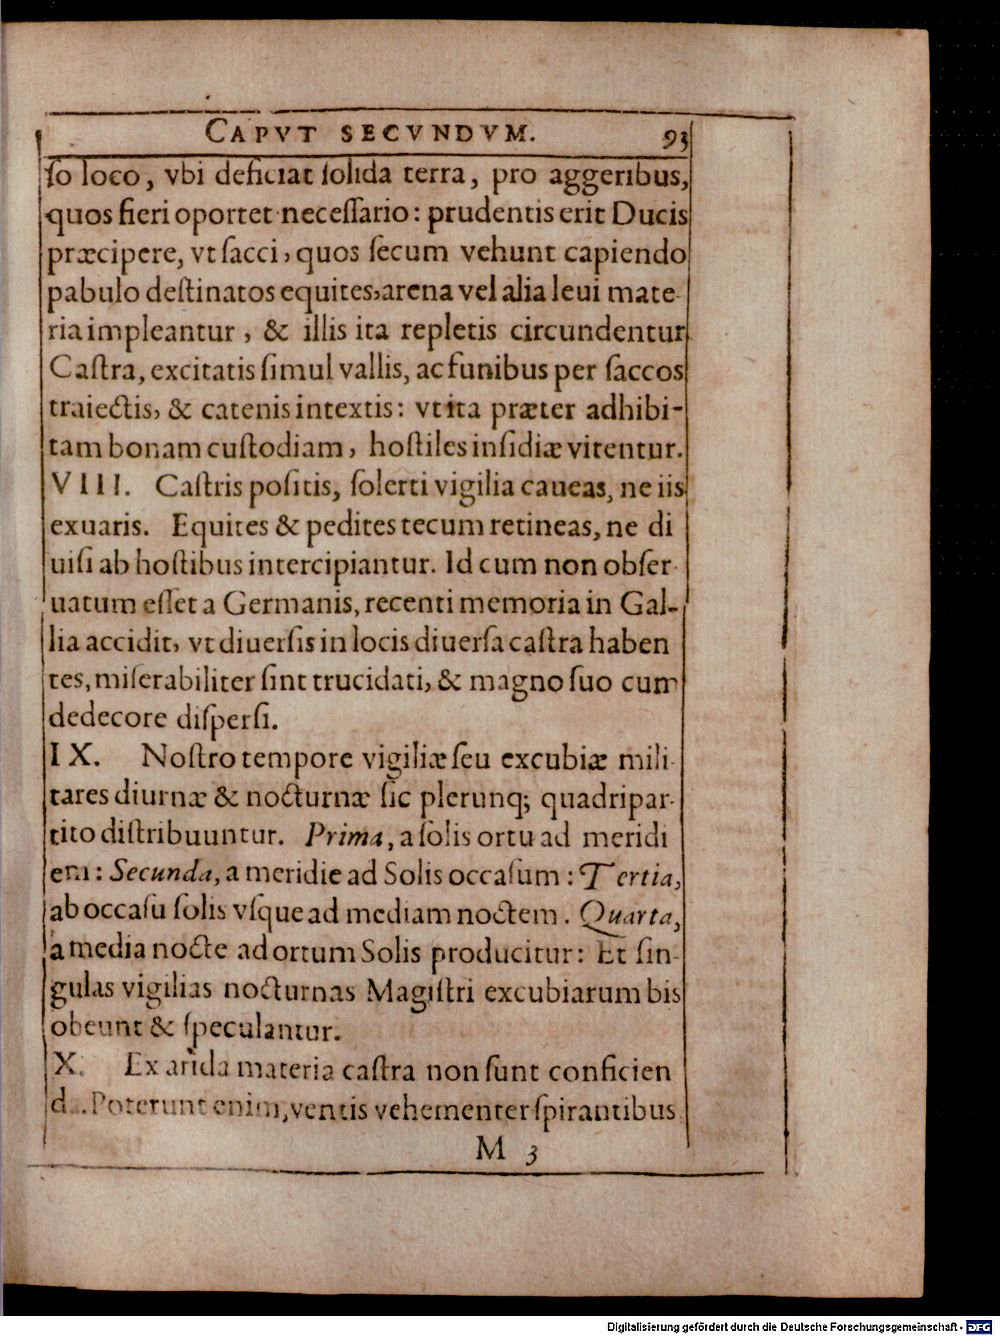 CAPVT SECVNDVM. 93
ſo loco, vbi deficiat ſolida terra, pro aggeribus,
quos fieri oportet neceſſario: prudentis erit Ducis
præcipere, vt ſacci, quos ſecum vehunt capiendo
pabulo deſtinatos equites, arena vel alia leui mate-
ria impleantur, & illis ita repletis circundentur
Caſtra, excitatis ſimul vallis, ac funibus per ſaccos
traiectis, & catenis intextis: vt ita præter adhibi-
tam bonam cuſtodiam, hoſtiles inſidiæ vitentur.
VIII. Caſtris poſitis, ſolerti vigilia caueas, ne iis
exuaris. Equites & pedites tecum retineas, ne di
uiſi ab hoſtibus intercipiantur. Id cum non obſer-
uatum eſſet a Germanis, recenti memoria in Gal-
lia accidit, vt diuerſis in locis diuerſa caſtra haben
tes, miſerabiliter ſint trucidati, & magno ſuo cum
dedecore diſperſi.
IX. Noſtro tempore vigiliæ ſeu excubiæ mili-
tares diurnæ & nocturnæ ſic plerunq; quadripar-
tito diſtribuuntur. Prima, a ſolis ortu ad meridi
em: Secunda, a meridie ad Solis occaſum: Tertia,
ab occaſu ſolis vſque ad mediam noctem. Quarta,
a media nocte ad ortum Solis producitur: Et ſin-
gulas vigilias nocturnas Magiſtri excubiarum bis
obeunt & ſpeculantur.
X. Ex arida materia caſtra non ſunt conficien
d... Poterunt enim, ventis vehementer ſpirantibus
M 3
Digitalisierung gefördert durch die Deutsche Forschungsgemeinschaft - DFG